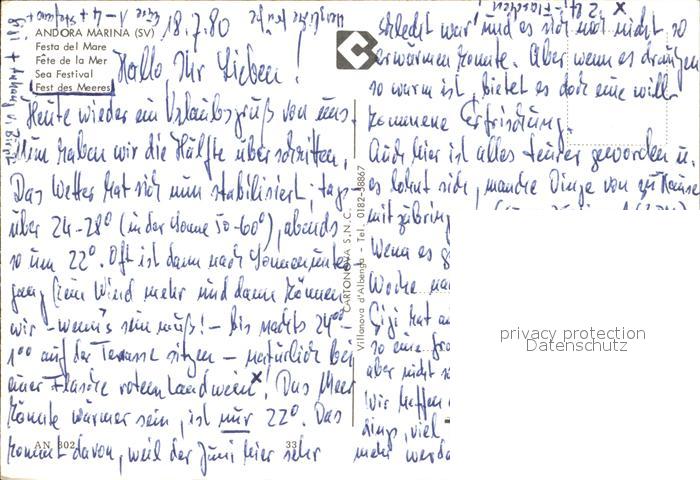 18.7.80
ANDORA MARINA (SV)
Festa del Mare
Fête de la Mer
Sea Festival
Fest des Meeres
Hallo Ihr Lieben!
Heute wieder ein Urlaubsgruß von uns.
Nun haben wir die Hälfte überschritten.
Das Wetter hat sich nun stabilisiert, tags-
über 24-28° (in der Sonne 50-60°), abends
so um 22°. Oft ist dann nach Sonnenunter-
gang kein Wind mehr und dann können
wir - wenn's sein muß! - bis nachts 24°°-
1°° auf der Terrasse sitzen - natürlich bei
einer Flasche rotem Landwein x. Das Meer
könnte wärmer sein, ist nur 22°. Das
kommt davon, weil der Juni hier sehr
AN 802
33
CARTONOVA S.N.C.
Villanova d'Albenga - Tel. 0182-58867
x 2 Ltr. Flaschen
schlecht war und es sich noch nicht so
erwärmen konnte. Aber wenn es draußen
so warm ist, bietet es doch eine will-
kommene Erfrischung.
Auch hier ist alles teurer geworden u.
es lohnt sich, manche Dinge von zu Hause
mitzubring
Wenn es
Woche
Gigi hat
so eine
aber nicht
Wir hoffen
dings, viel
mehr werd
privacy protection
Datenschutz